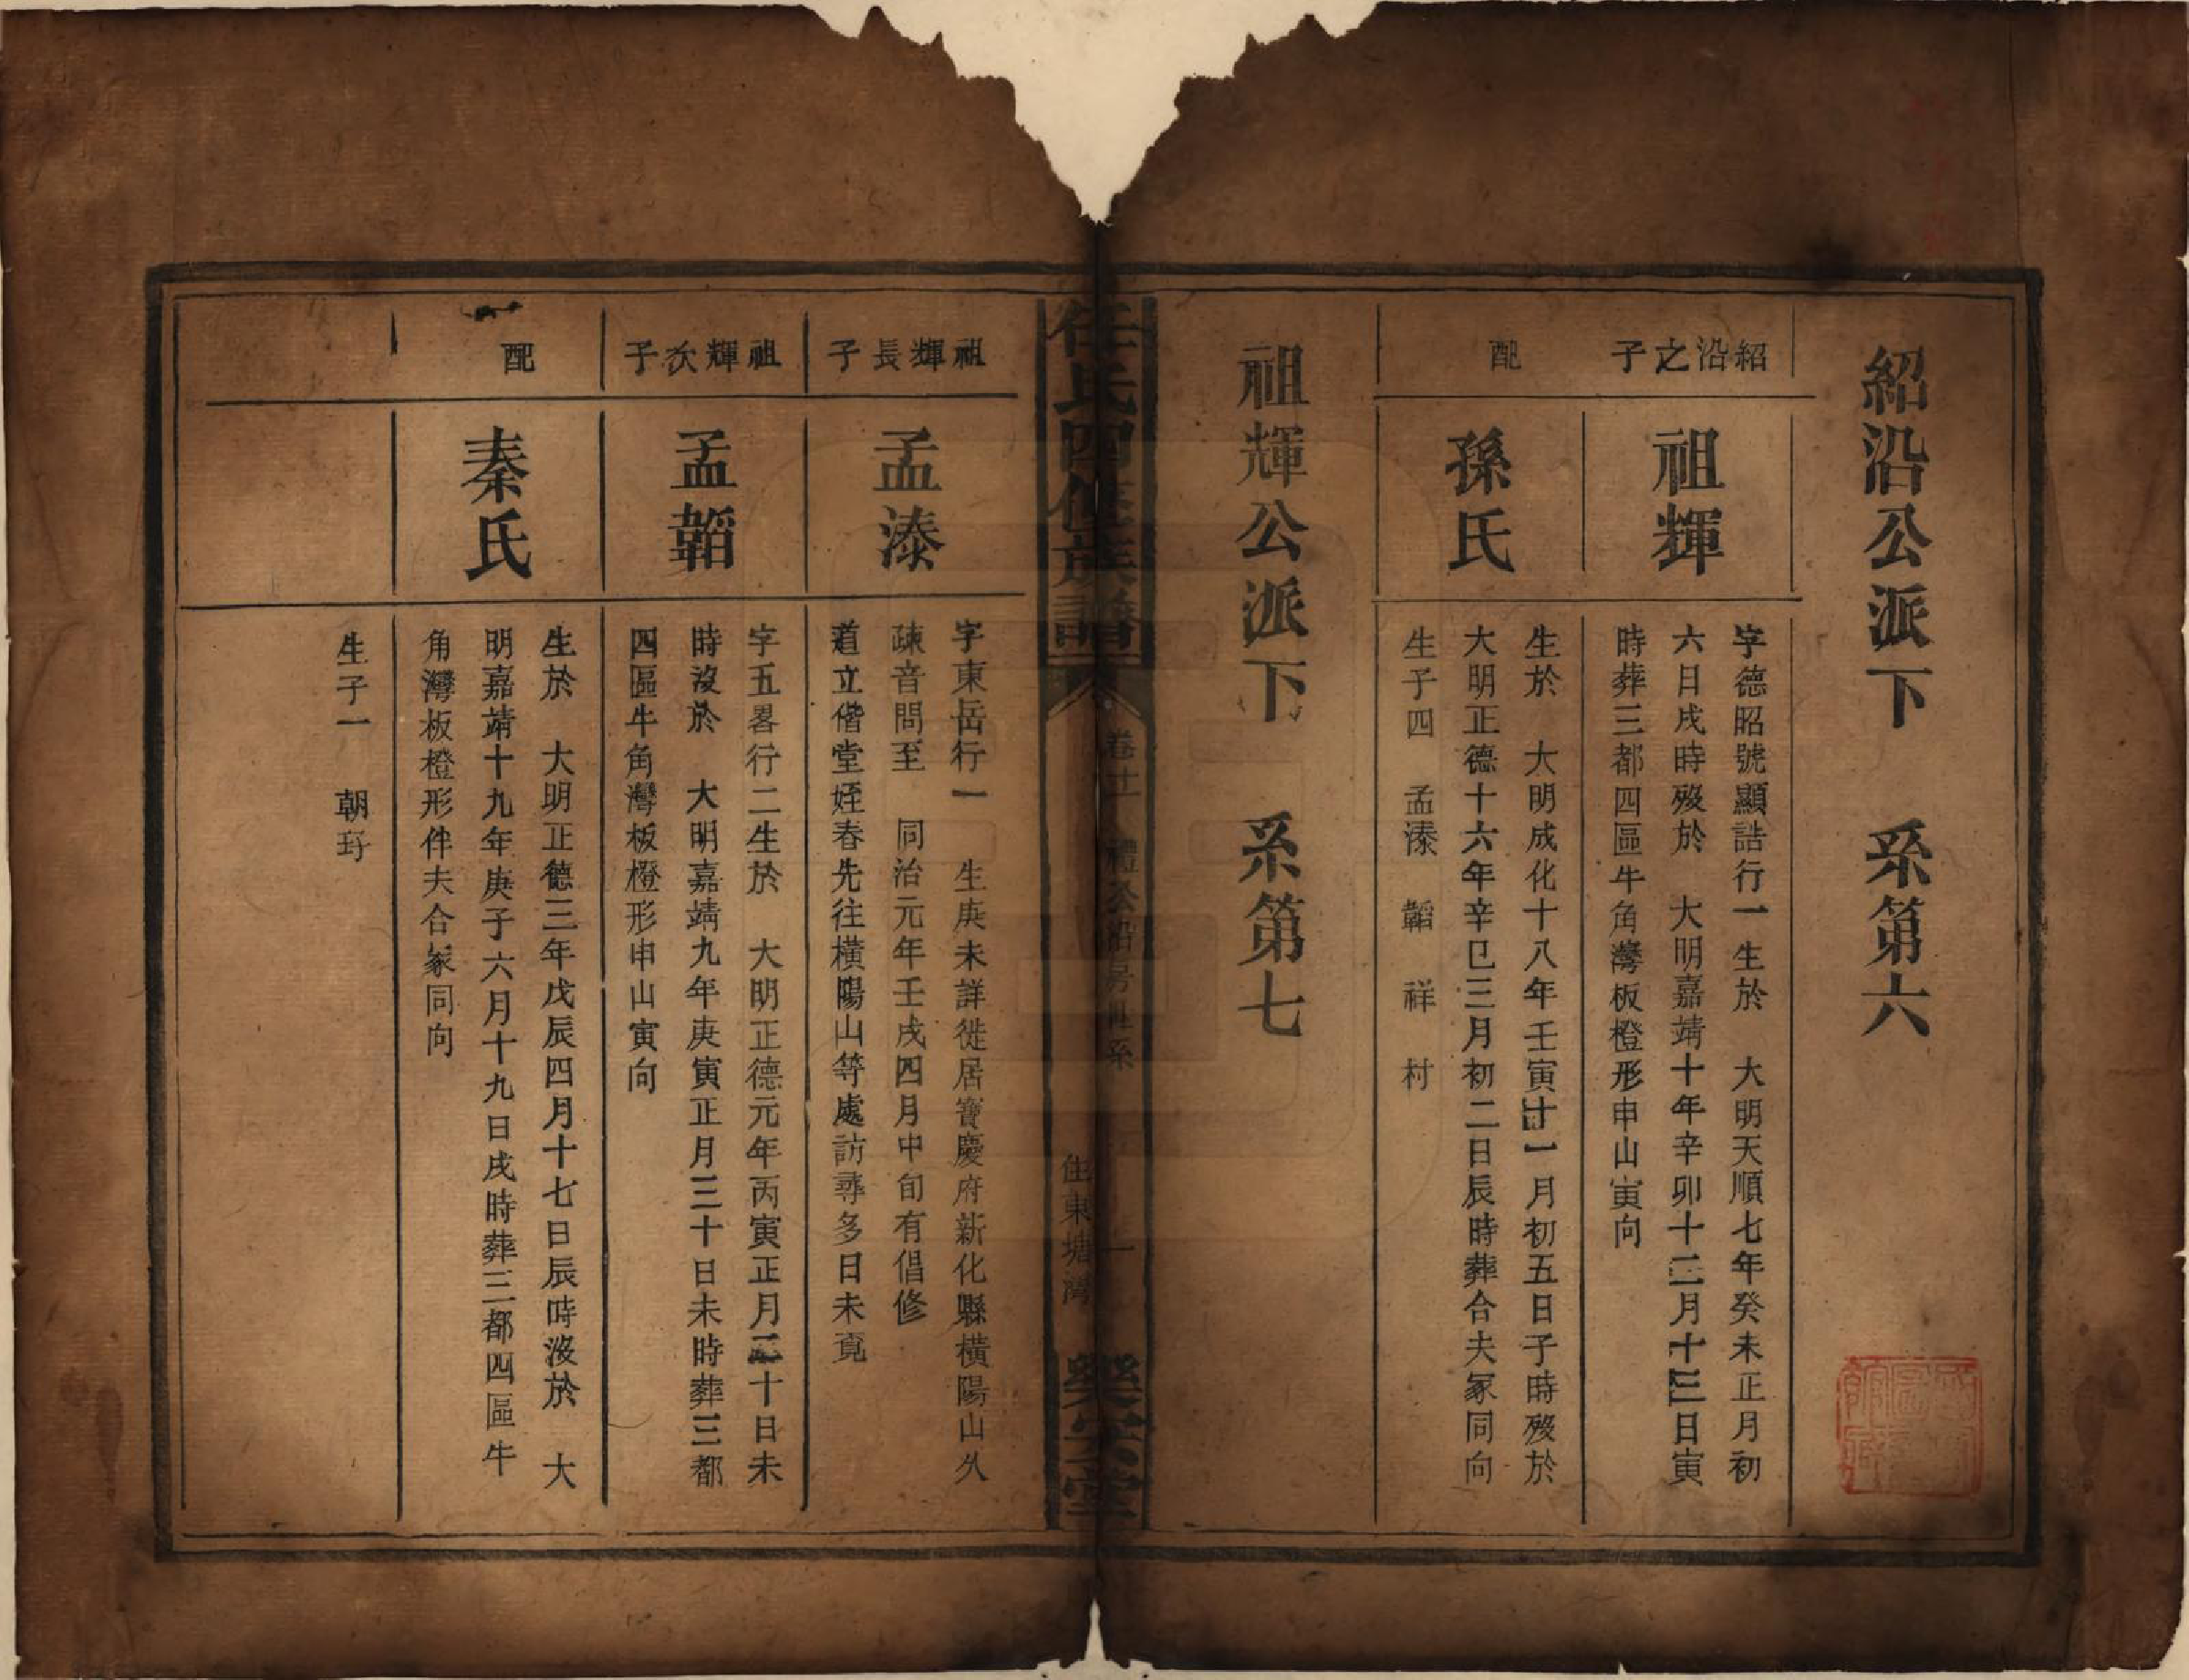 紹沿公派下　系第六
紹沿之子
祖輝
字德昭號顯誥行一生於　大明天順七年癸未正月初
六日戌時歿於　大明嘉靖十年辛卯十二月十三日寅
時葬三都四區牛角灣板橙形申山寅向
配
孫氏
生於　大明成化十八年壬寅十一月初五日子時歿於
大明正德十六年辛巳三月初二日辰時葬合夫冢同向
生子四　孟溱　韜　祥　村
祖輝公派下　系第七
任氏四修族譜
卷廿　禮公沿房世系
住東塘灣
樂安堂
祖輝長子
孟溱
字東岳行一　生庚未詳徙居寶慶府新化縣橫陽山久
疎音問至　同治元年壬戌四月中旬有倡修
道立偕堂姪春先往橫陽山等處訪尋多日未覔
祖輝次子
孟韜
字五畧行二生於　大明正德元年丙寅正月三十日未
時沒於　大明嘉靖九年庚寅正月三十日未時葬三都
四區牛角灣板橙形申山寅向
配
秦氏
生於　大明正德三年戊辰四月十七日辰時沒於　大
明嘉靖十九年庚子六月十九日戌時葬三都四區牛
角灣板橙形伴夫合冢同向
生子一　朝玗